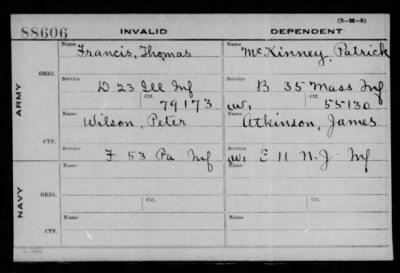 (3-M-5)
88606 INVALID DEPENDENT
Name Name
Francis, Thomas McKinney, Patrick
ORIG.
Service Service
D 23 Ill Inf B 35 Mass Inf
Ctf. Ctf.
79173 W, 55130
ARMY
Name Name
Wilson, Peter Atkinson, James
CTF.
Service Service
F 53 Pa Inf W, E 11 N.J. Inf
Name Name
ORIG.
Service Service
Ctf. Ctf.
NAVY
Name Name
CTF.